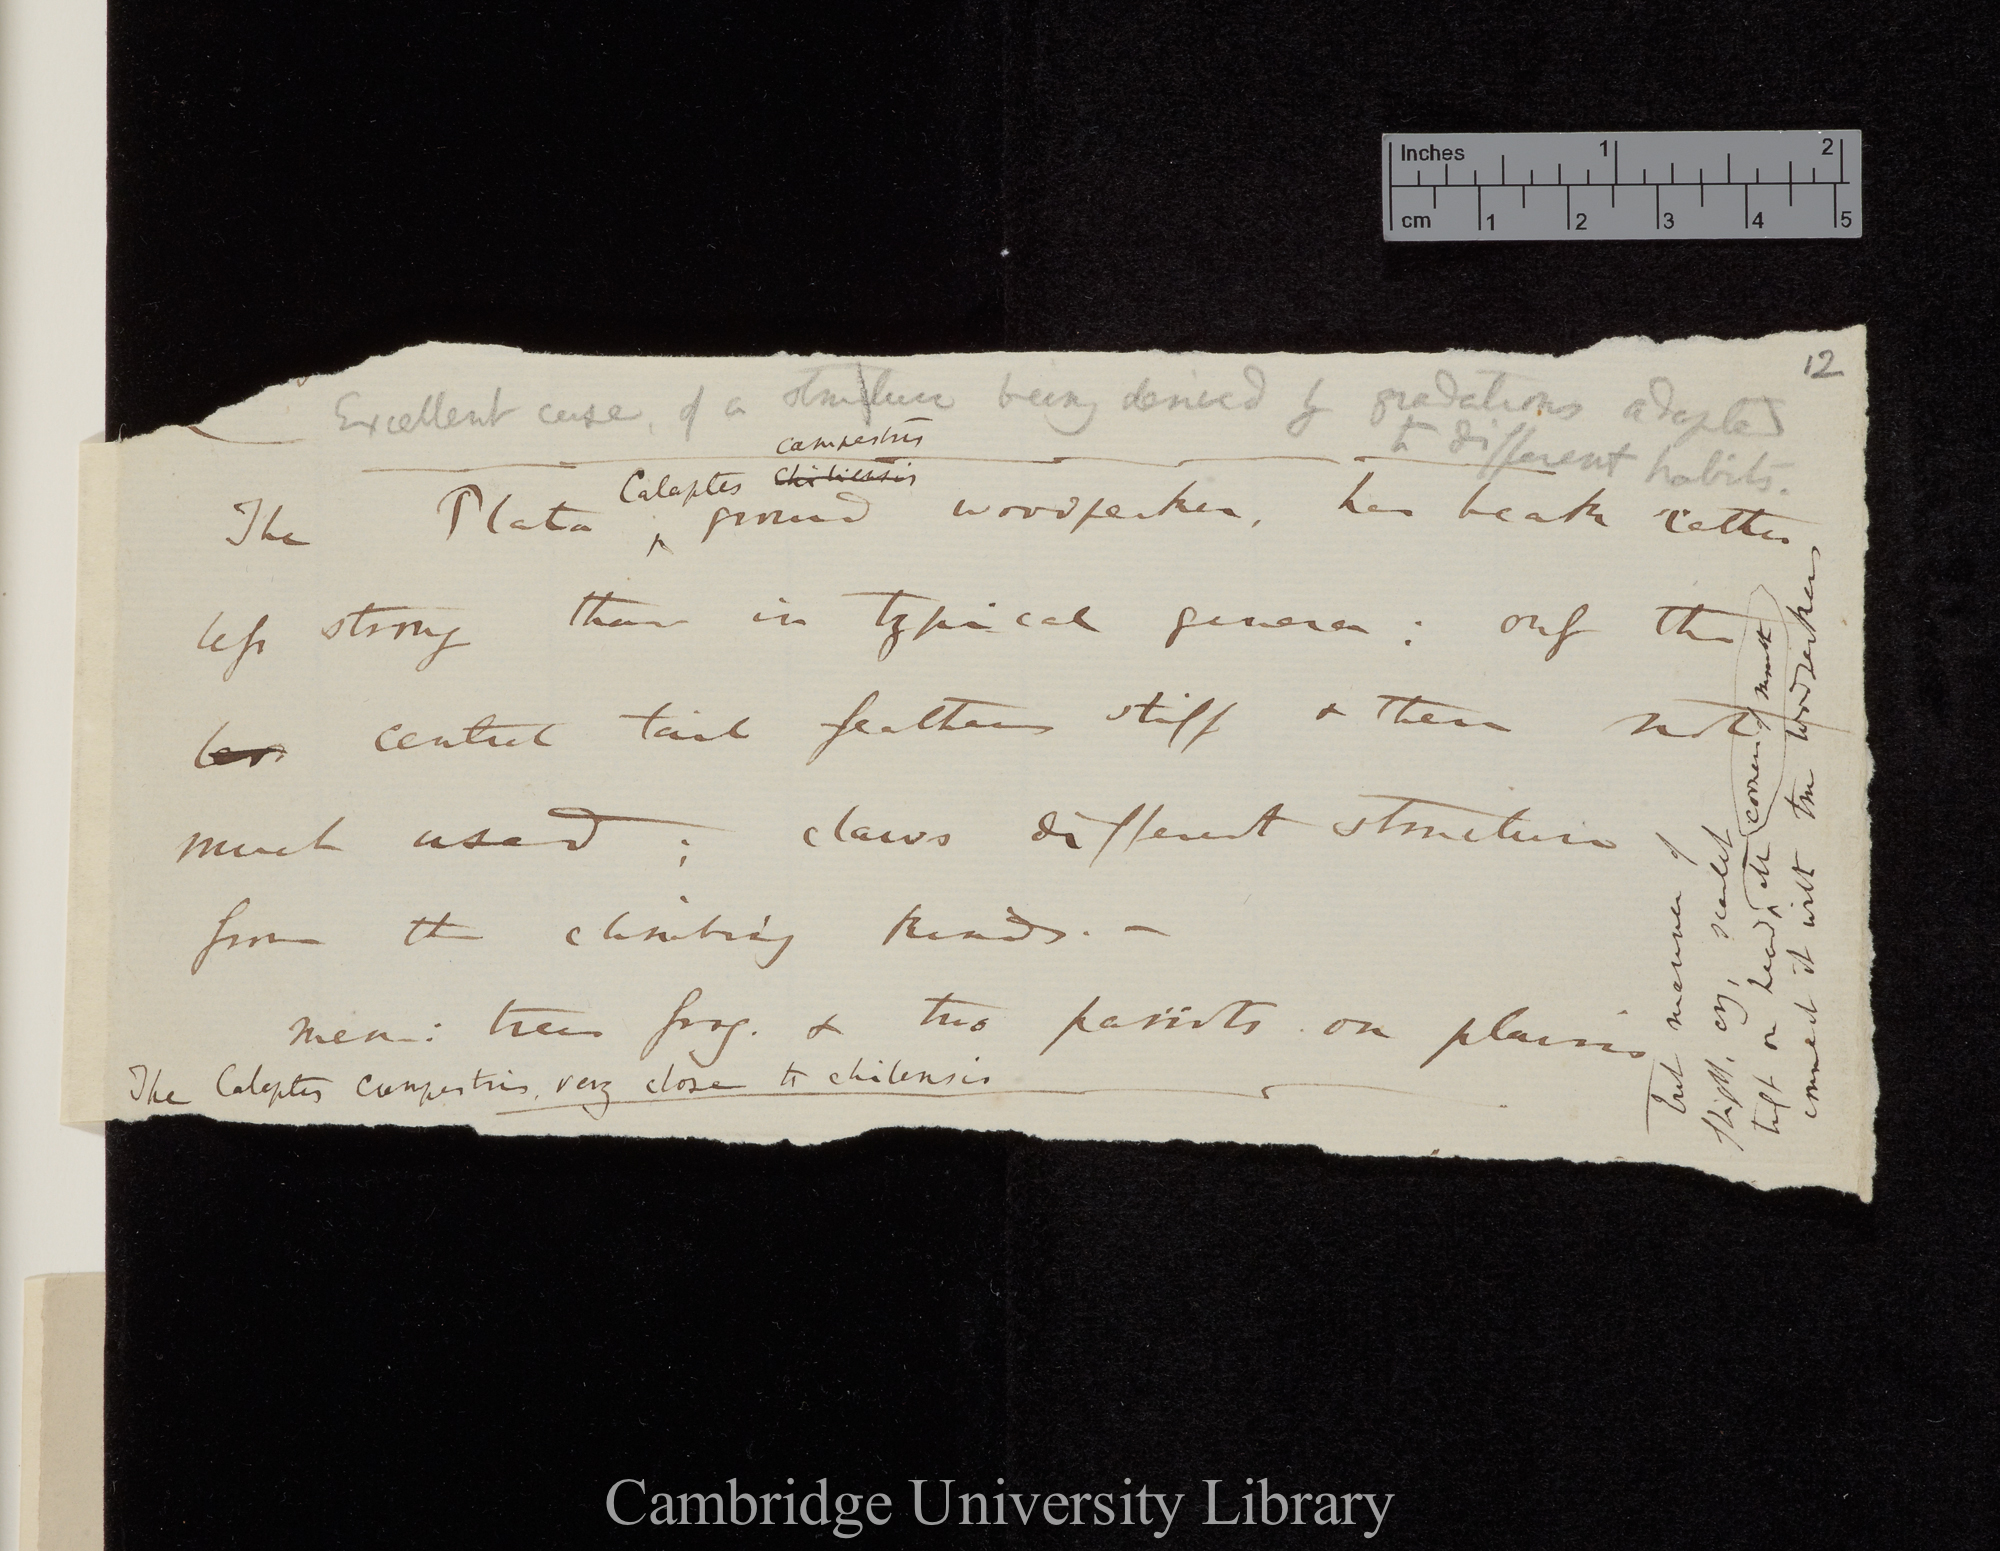 Inches 1 2
cm 1 2 3 4 5
12
Excellent case, of a structure being derived by gradations adapted
to different habits.
campestris
Colaptes Chiliensis
The Plata ^ ground woodpecker, has beak rather
less strong than in typical genera; only the
central tail feathers stiff & these not
much used; claws different structure
from the climbing kinds. —
Mem: tree frog. & two parrots on plains
The Colaptes campestris, very close to chilensis
But manner of
flight, cry, scarlet
tuft on head ^ at corner of mouth
connect it with the woodpeckers
Cambridge University Library